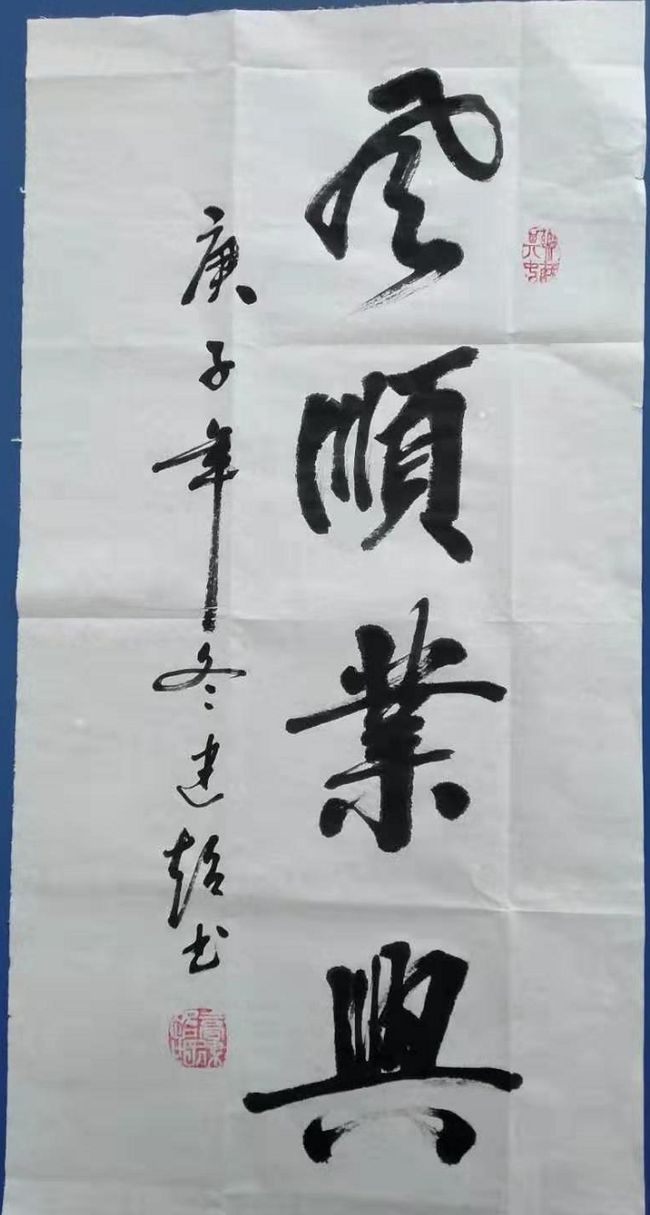 風順業興
庚子年冬建超书